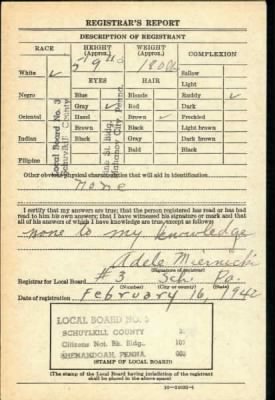 REGISTRAR'S REPORT
DESCRIPTION OF REGISTRANT
RACE HEIGHT (Approx.) WEIGHT (Approx.) COMPLEXION
5' 9" 180 lb
White ✓ EYES HAIR Sallow
Light
Negro Blue Blonde Ruddy ✓
Gray ✓ Red Dark
Oriental Hazel Brown ✓ Freckled
Brown Black Light brown
Indian Black Gray Dark brown
Bald Black
Filipino
Local Board No. 3
Schuylkill County
Mahanoy City, Penna.
Other obvious physical characteristics that will aid in identification
None
I certify that my answers are true; that the person registered has read or has had
read to him his own answers; that I have witnessed his signature or mark and that
all of his answers of which I have knowledge are true, except as follows:
none to my knowledge
Adele Miernicki
(Signature of registrar)
Registrar for Local Board #3 Sch. Pa.
(Number) (City or county) (State)
Date of registration February 16, 1942
LOCAL BOARD NO. 3
SCHUYLKILL COUNTY
Citizens Nat. Bk. Bldg.
SHENANDOAH, PENNA.
(STAMP OF LOCAL BOARD)
(The stamp of the Local Board having jurisdiction of the registrant
shall be placed in the above space)